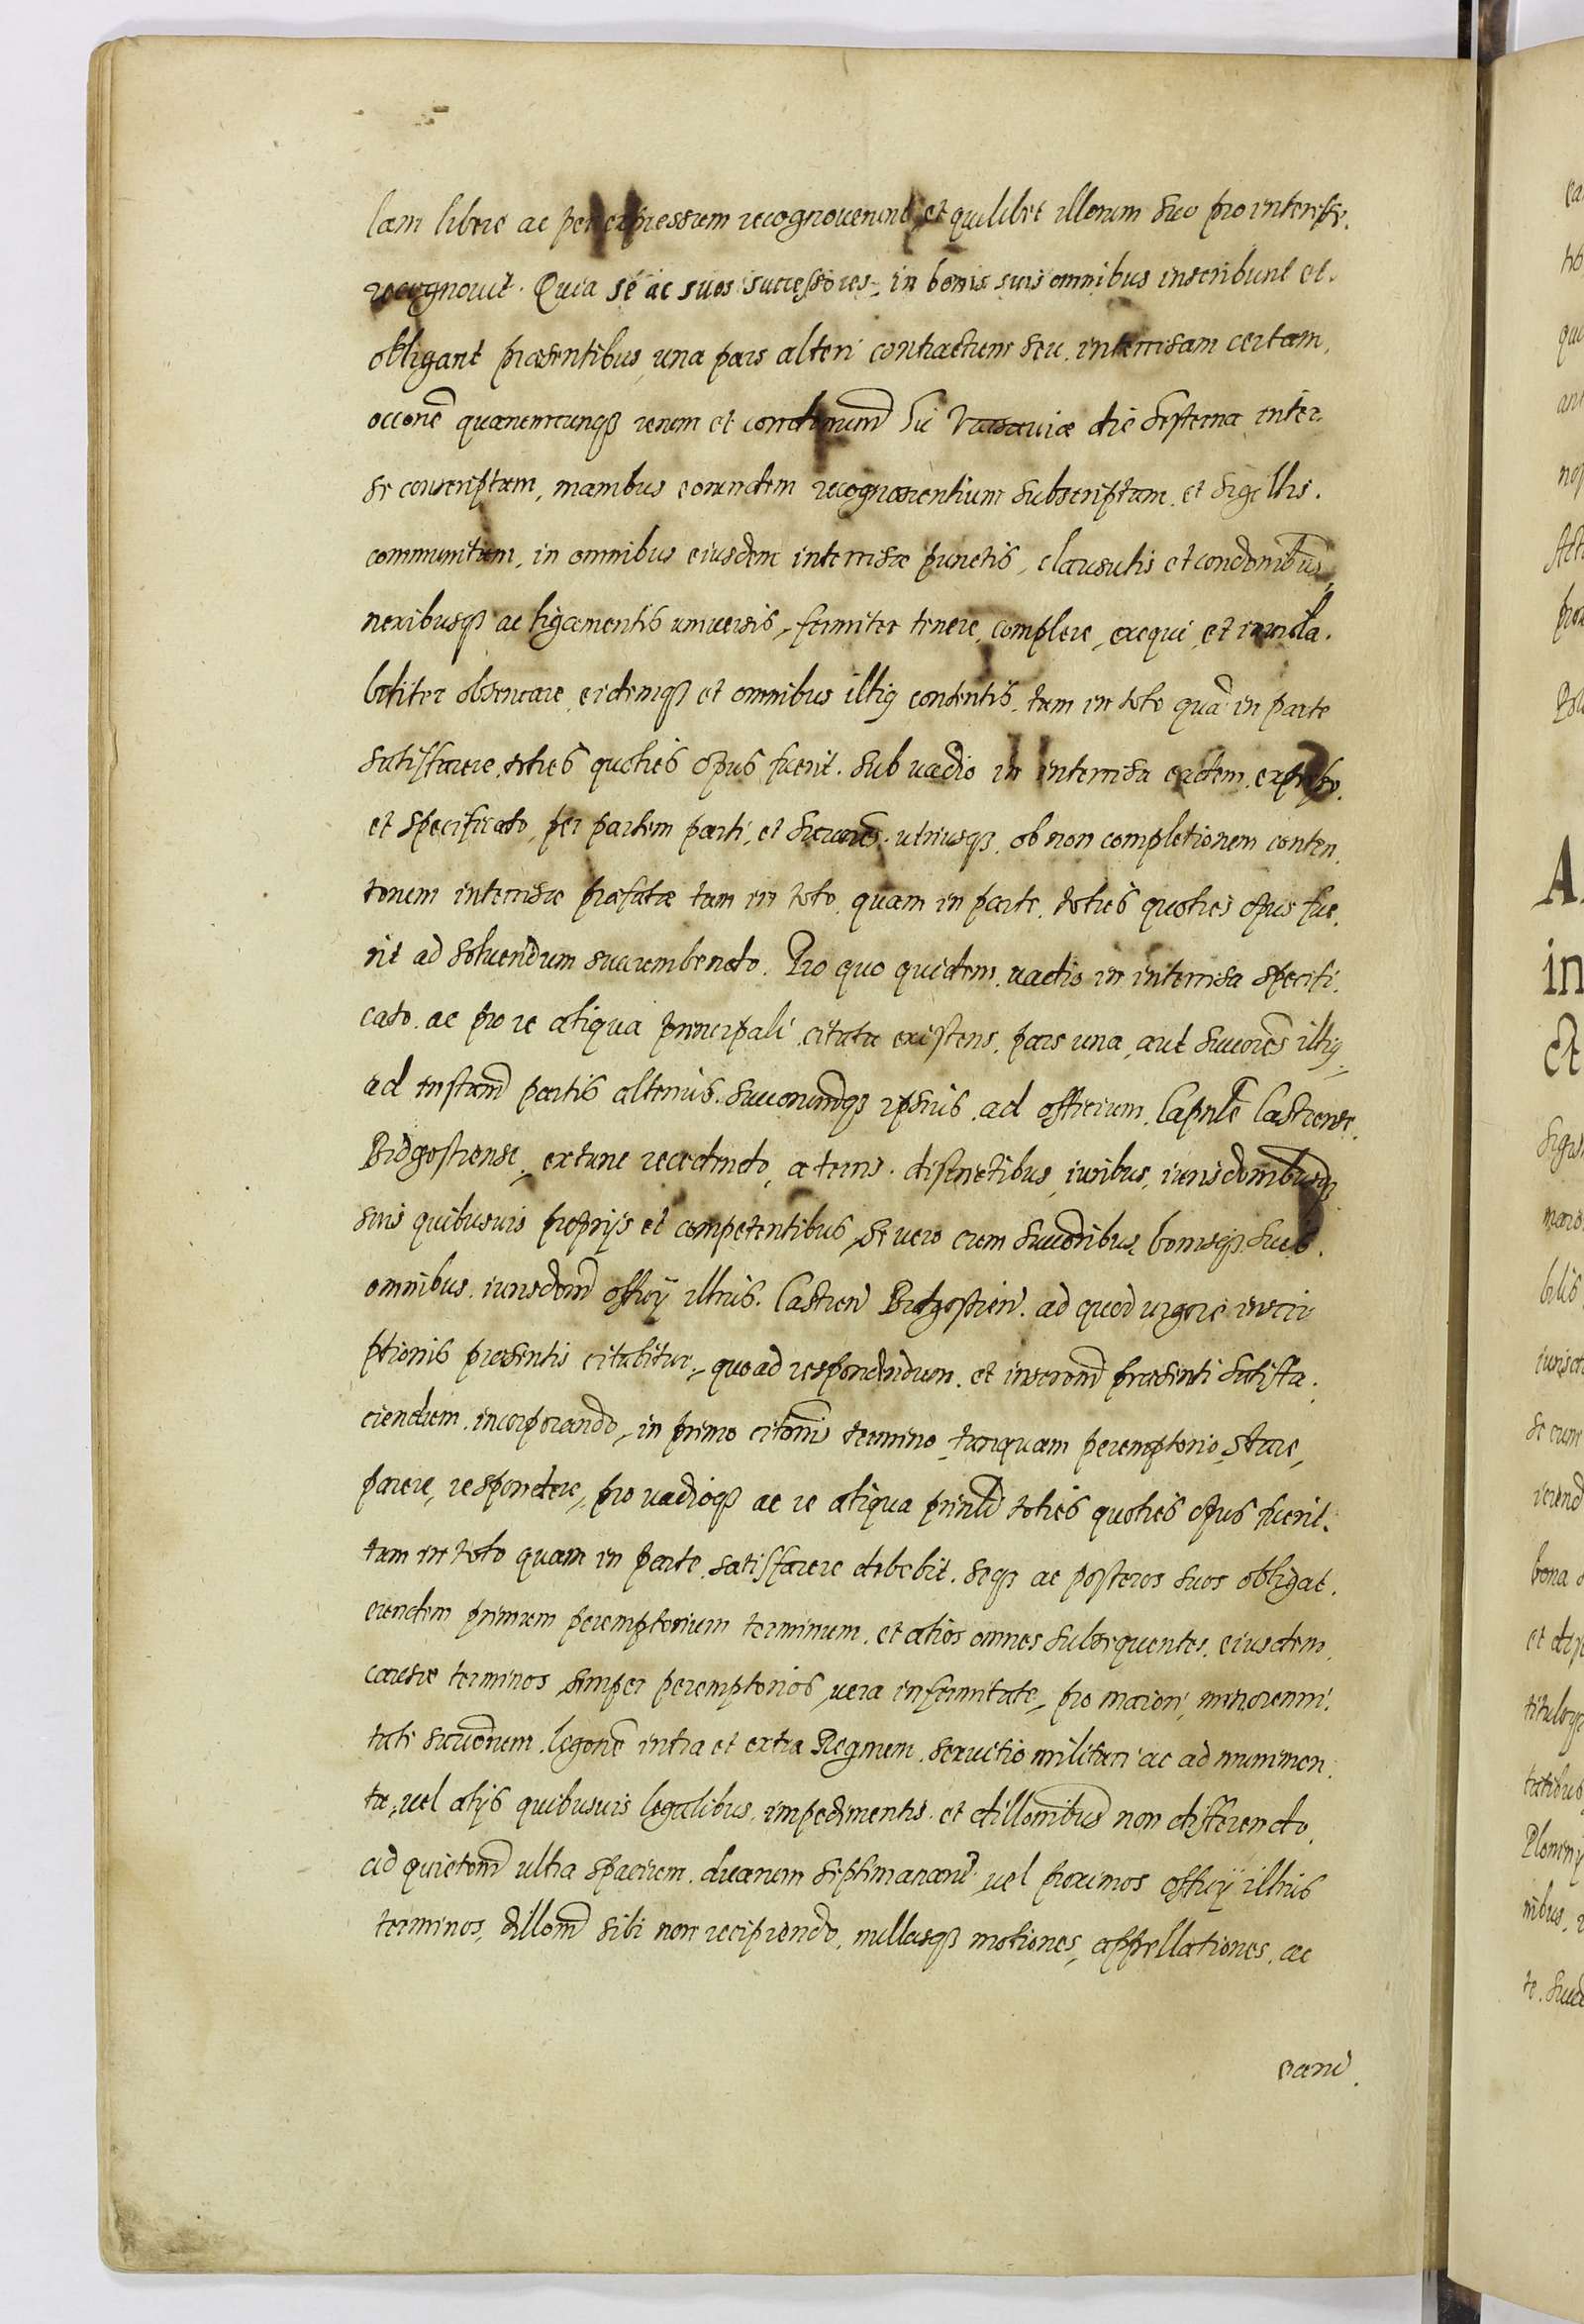 lam libere ac per expressum recognoverunt, et quilibet illorum suo pro interesse.
recognovit. Quia se ac suos successores, in bonis suis omnibus inscribunt et.
obligant præsentibus, una pars alteri contractum seu intercisam certam,
occõne quarumcunqȝ rerum et condinũ hic Varsaviæ die hesterna inter.
se conscriptam, manibus eorundem recognoscentium subscriptam et sigillis.
communitam, in omnibus eiusdem intercisæ punctis, clausulis et condõnibus,
nexibusqȝ ac ligamentis universis, firmiter tenere, complere, exequi, et inviola.
biliter observare, eidemqȝ et omnibus illiȝ contentis, tam in toto quã in parte
satisfacere, toties quoties opus fuerit. sub vadio in intercisa eadem expresso.
et specificato, per partem parti, et succores utriusqȝ, ob non completionem conten.
torum intercisæ præfatæ tam in toto, quam in parte, toties quoties opus fue.
rit ad solvendum succumbendo. Pro quo quidem vadio in intercisa specifi.
cato. ac pro re aliqua principali citata existens, pars una, aut succores illiȝ,
ad instanã partis alterius. succorumqȝ ipsius, ad officium Capnle Castrense.
Bidgostiense, extunc recedendo, a terris. districtibus, iuribus, iurisdonibusqȝ
suis quibusvis proprijs et competentibus, se vero cum succoribus, bonisqȝ suis.
omnibus. iurisdonĩ officij illius. Castreñ Bidgostieñ. ad quod vigore inscri
ptionis præsentis citabitur, quo ad respondendum. et inscronĩ præsenti satisfa.
ciendum. incorporando, in primo citonis termino, tanquam peremptorio, stare,
parere, respondere, pro vadioqȝ ac re aliqua prinlĩ toties quoties opus fuerit.
tam in toto quam in parte satisfacere debebit. seqȝ ac posteros suos obligat.
eiendem primum peremptorium terminum. et alios omnes subsequentes. eiusdem.
causæ terminos, semper peremptorios, vera infirmitate, pro maiori, minorenni.
tate succorum. legonẽ intra et extra Regnum. servitio militari ac ad munimen.
ta, vel alijs quibusvis legalibus. impedimentis. et dillonibus non differendo.
ad quietonĩ ultra spacium. duarum septimanarũ vel proximos officij illius
terminos, dillonĩ sibi non recipiendo, nullasqȝ motiones, appellationes, ac